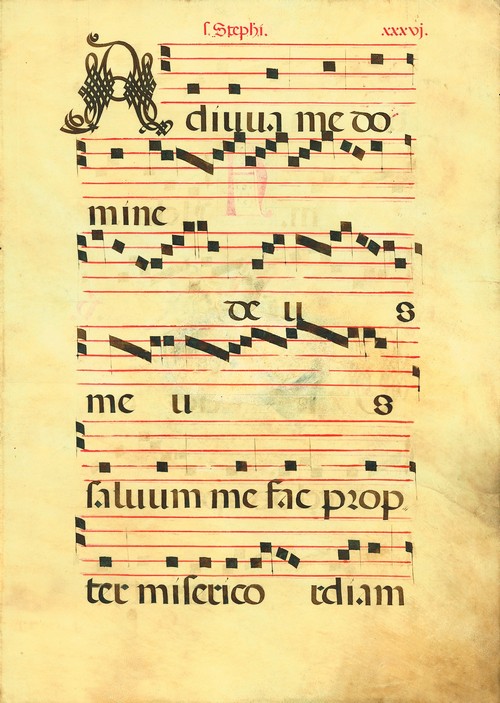 s. Stephi. xxxvj.
Adiuua me do
mine
de us
me us
saluum me fac prop
ter miserico rdiam